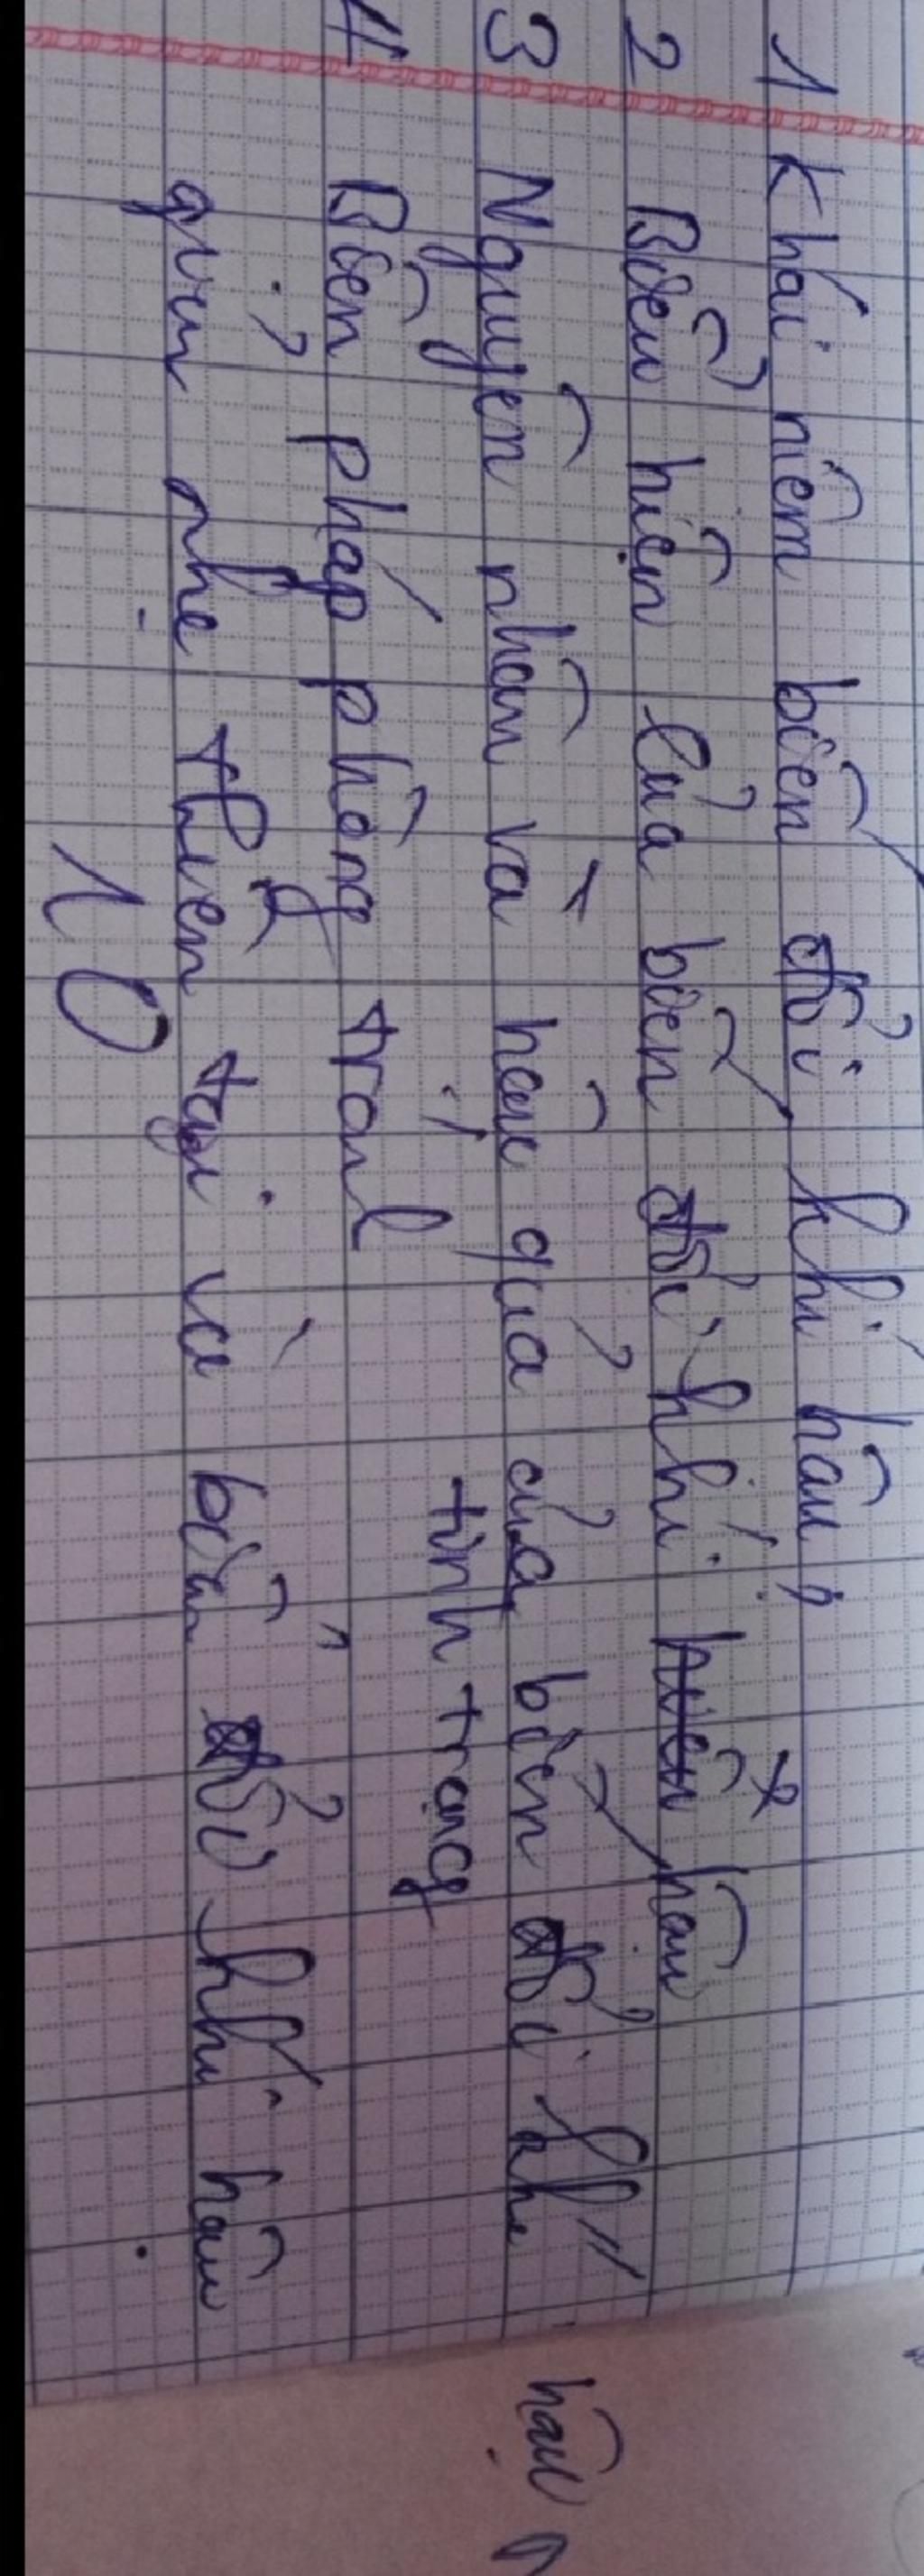 1 Khái niệm biến đổi khí hậu
2 Biểu hiện của biến đổi khí hậu
3 Nguyên nhân và hậu quả của biến đổi khí hậu
4 Biện pháp phòng tránh
tình trạng
giảm nhẹ thiên tai và biến đổi khí hậu
10